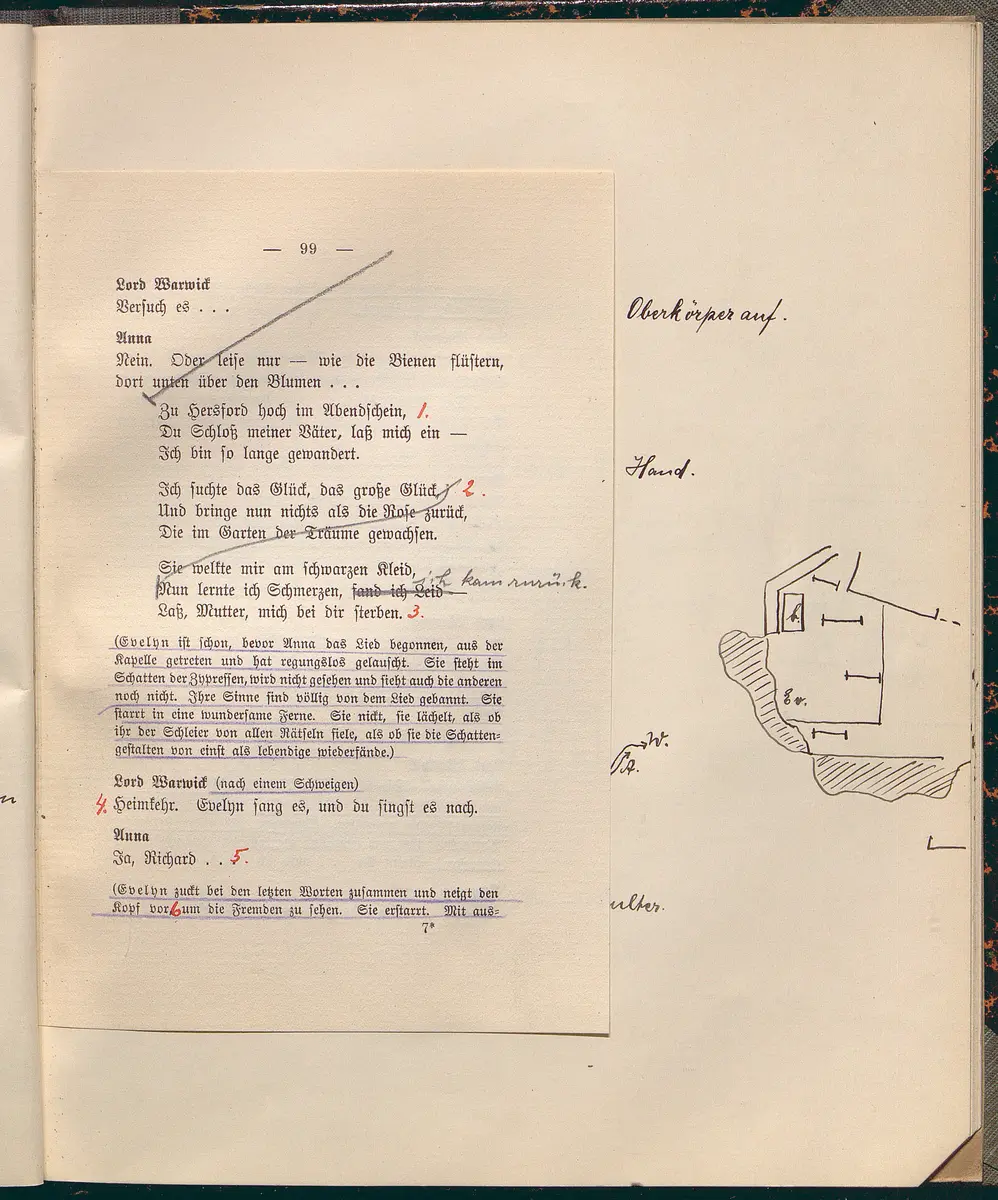 — 99 —
Lord Warwick
Versuch es . . .
Anna
Nein. Oder leise nur — wie die Bienen flüstern,
dort unten über den Blumen . . .
Zu Hersford hoch im Abendschein, 1.
Du Schloß meiner Väter, laß mich ein —
Ich bin so lange gewandert.
Ich suchte das Glück, das große Glück, 2.
Und bringe nun nichts als die Rose zurück,
Die im Garten der Träume gewachsen.
Sie welkte mir am schwarzen Kleid,
ich kam zurück.
Nun lernte ich Schmerzen, fand ich Leid —
Laß, Mutter, mich bei dir sterben. 3.
(Evelyn ist schon, bevor Anna das Lied begonnen, aus der
Kapelle getreten und hat regungslos gelauscht. Sie steht im
Schatten der Zypressen, wird nicht gesehen und sieht auch die anderen
noch nicht. Ihre Sinne sind völlig von dem Lied gebannt. Sie
starrt in eine wundersame Ferne. Sie nickt, sie lächelt, als ob
ihr der Schleier von allen Rätseln fiele, als ob sie die Schatten-
gestalten von einst als lebendige wiederfände.)
Lord Warwick (nach einem Schweigen)
4. Heimkehr. Evelyn sang es, und du singst es nach.
Anna
Ja, Richard . . 5.
(Evelyn zuckt bei den letzten Worten zusammen und neigt den
Kopf vor 6 um die Fremden zu sehen. Sie erstarrt. Mit aus-
7*
Oberkörper auf.
Hand.
Ev.
W.
A.
ulter.